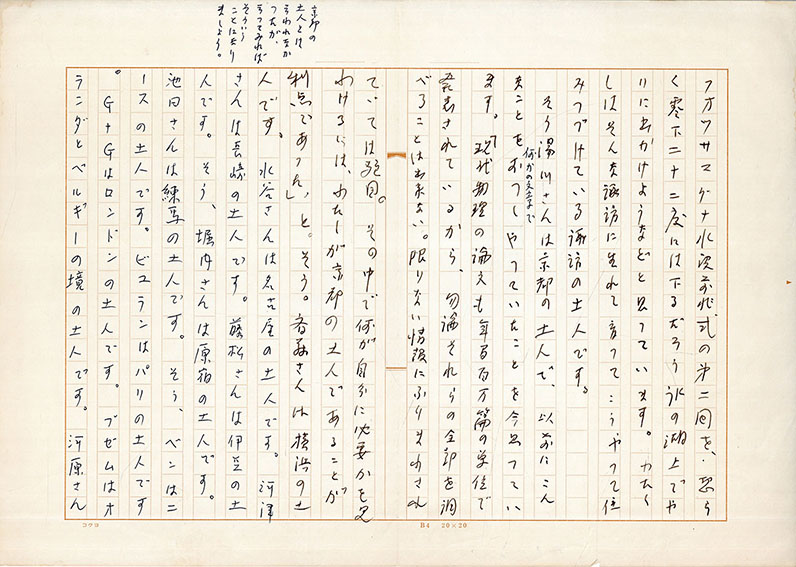 フオツサマグナ氷河前非式の第二回を、恐ら
く零下二十二度には下るだろう氷の湖上でや
りに出かけようなどと思っています。わたく
しはそんな諏訪に生れて育ってこうやって住
みつづけている諏訪の土人です。
そう湯川さんは京都の土人で、以前にこん
なことをおっしゃっていたことを今思ってい
何かの文章で
ます。「現代物理の論文も年百百万篇の単位で
発表されているから、勿論それらの全部を調
べることは出来ない。限りない情報にふりまわされ
ていては駄目。その中で何が自分に必要かを見
わけるには、わたしが京都の土人であることが
利点であった」と。そう。斉藤さんは横浜の土
人です。水谷さんは名古屋の土人です。河津
さんは長崎の土人です。藤松さんは伊豆の土
人です。そう、堀内さんは原宿の土人です。
池田さんは練馬の土人です。そう、ベンはニ
ースの土人です。ビュランはパリの土人です
。G+Gはロンドンの土人です。ブゼムはオ
ランダとベルギーの境の土人です。河原さん
京都の
土人とは
言われなか
つたが、
言つてみれば
そういう
ことになり
ましよう。
コクヨ
B4 20×20